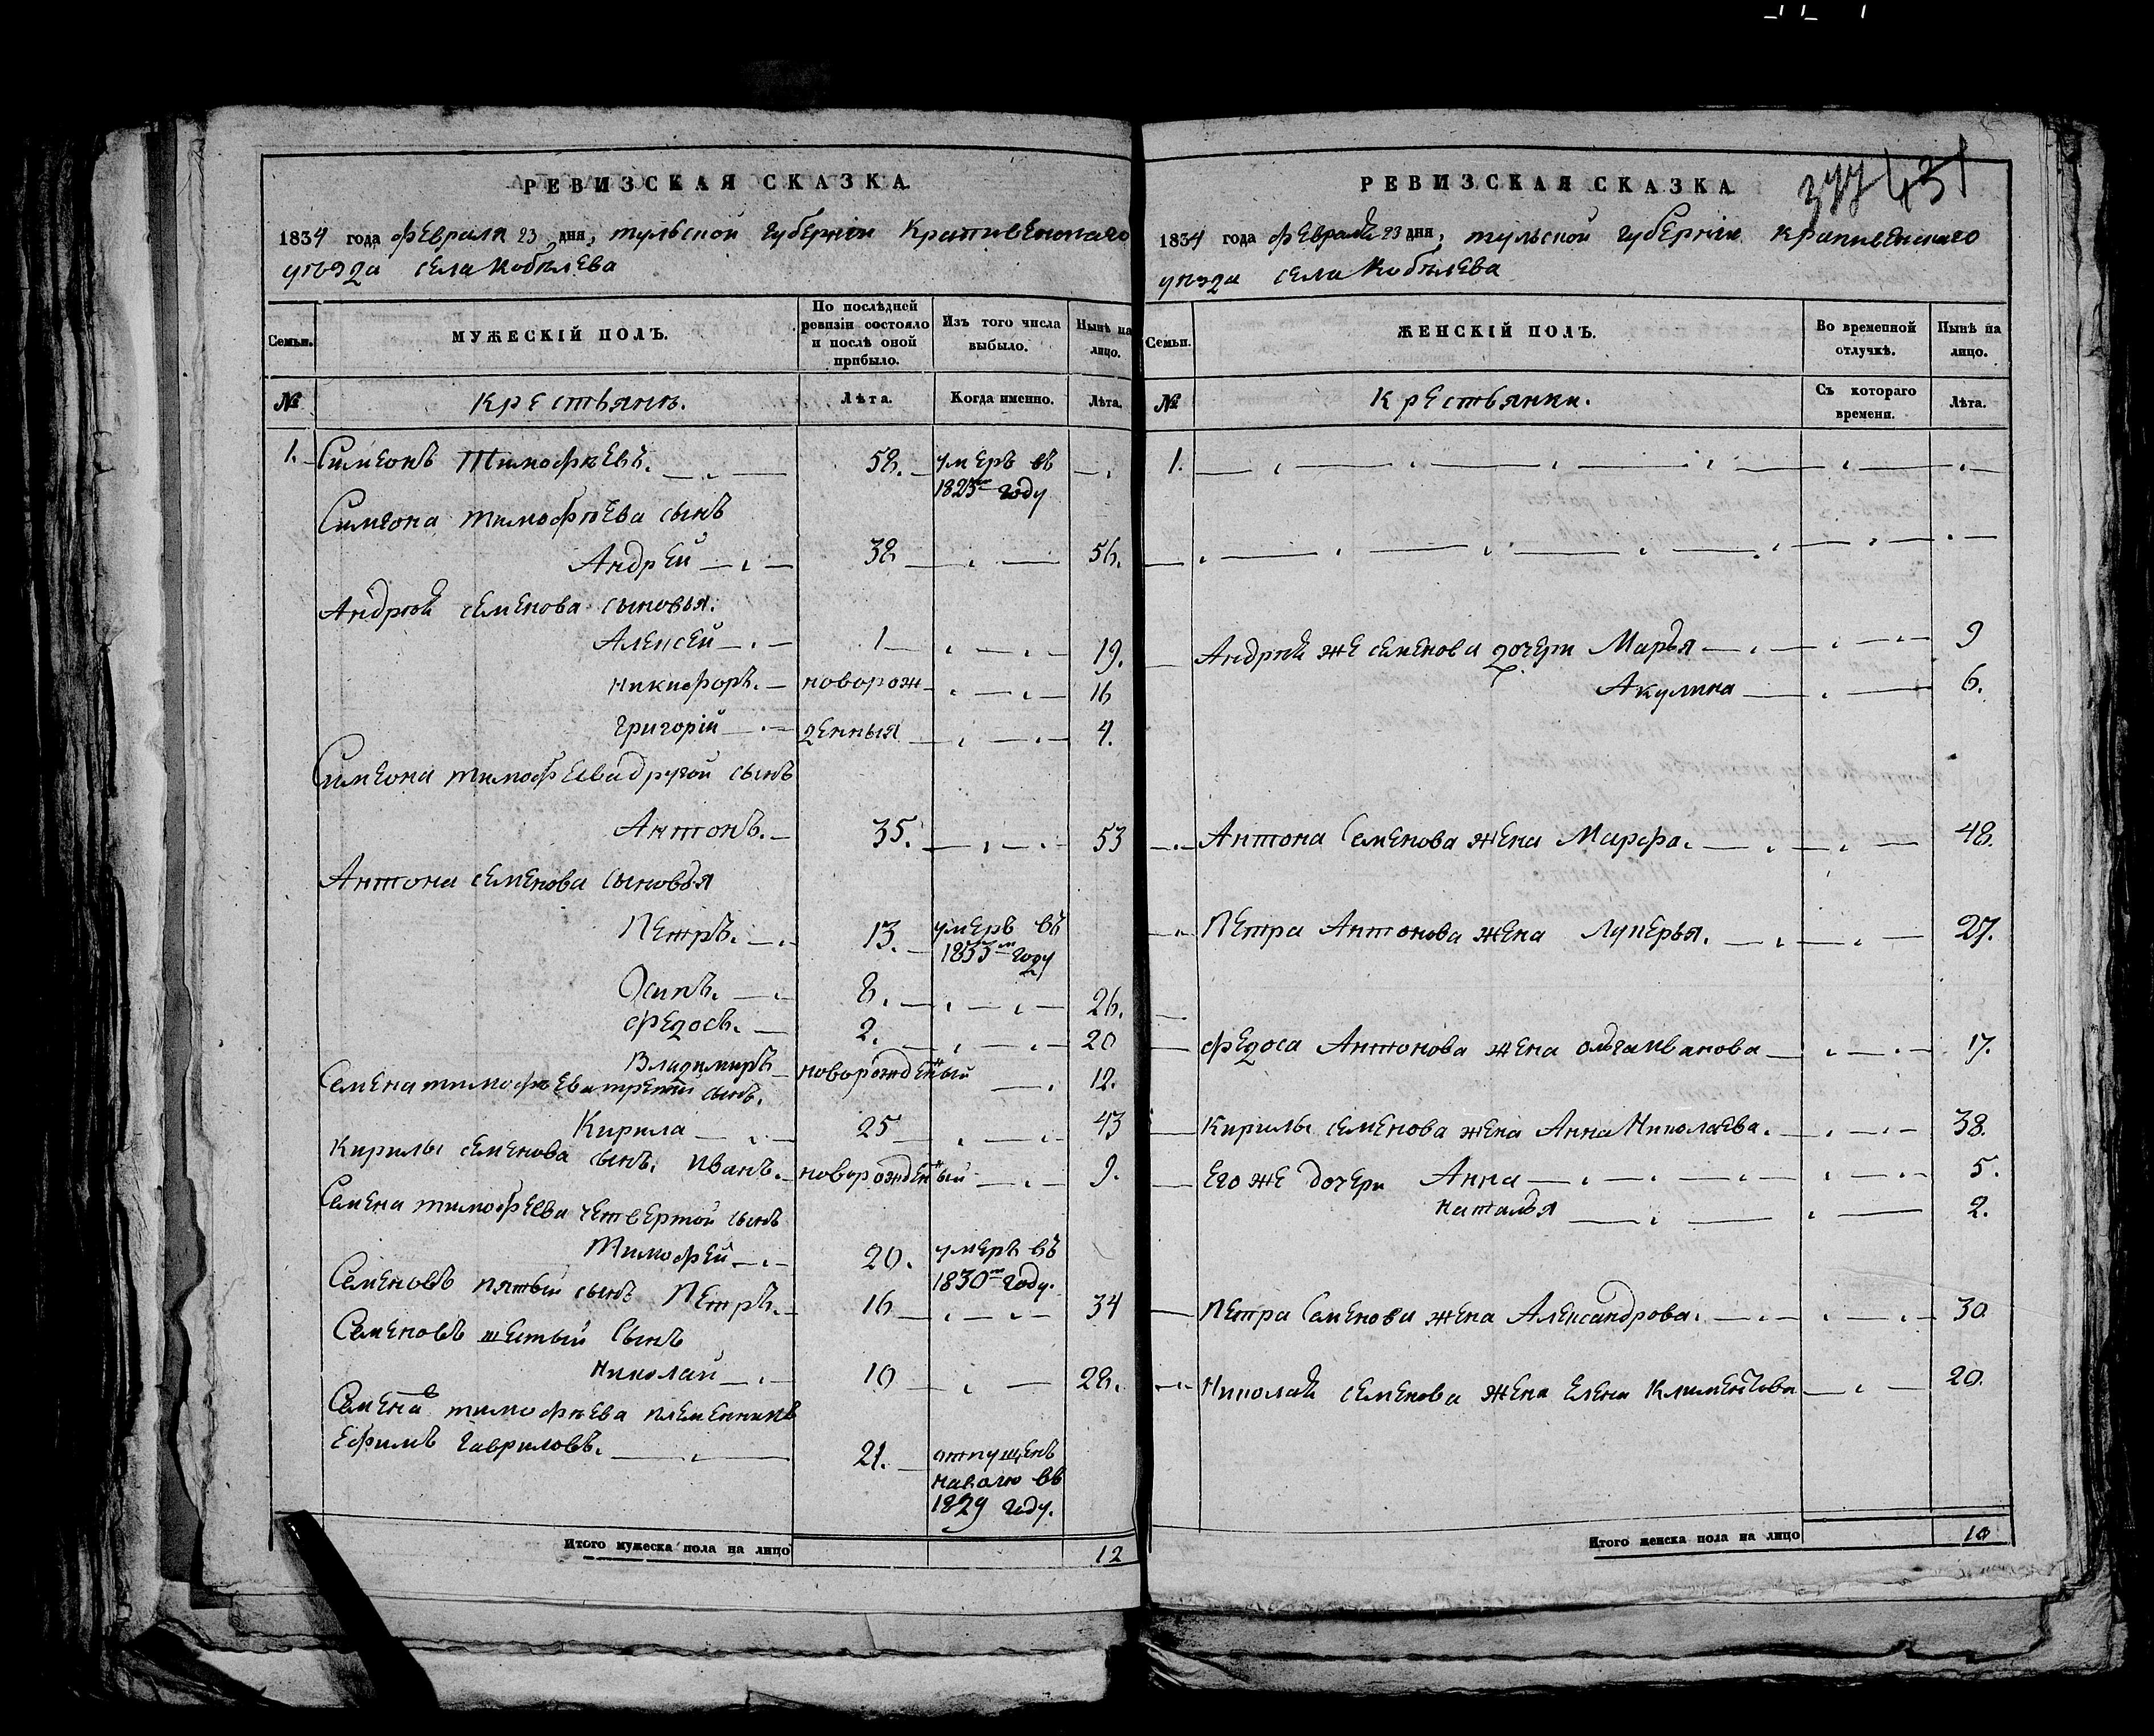 РЕВИЗСКАЯ СКАЗКА.
1834 года февраля 23 дня, тульской губернiи Крапивенскаго
уѣзда села Кобылева
Семьи.
МУЖЕСКІЙ ПОЛЪ.
По послѣдней
ревизіи состояло
и послѣ оной
прибыло.
Изъ того числа
выбыло.
Нынѣ на
лицо.
№
крестьянѣ.
Лѣта.
Когда именно.
Лѣта.
1. Симеонъ Тимофѣевъ. 58. умеръ въ
1825м году
Симеона тимофѣева сынъ
Андрей 38 56.
Андрѣй семенова сыновья.
Алексей 1 19.
никифоръ. новорож 16
григорiй денныя 4.
Симеона тимофеева другой сынъ
Антонъ. 35. 53
Антона семенова сыновья
Петръ. 13. умеръ въ
1833м году
Осипъ. 8. 26.
федосъ. 2. 20
Владимиръ новорожденый 12.
Семена тимофѣева третiй сынъ.
Кирила 25 43
Кирилы семенова сынъ. иванъ. новорожденый 9.
Семена тимофеева четвертой сынъ
Тимофей 20. умеръ въ
1830м году.
Семеновъ пятый сынъ Петръ. 16 34
Семеновъ шестый Сынъ
николай 10 28.
Семена тимофѣева племенникъ
Ефимъ гавриловъ. 21. отпущенъ
наволю въ
1829 году.
Итого мужеска пола на лицо 12
377 431
РЕВИЗСКАЯ СКАЗКА.
1834 года февраля 23 дня, тульской губернiи крапивенскаго
уѣзда села Кобылева
Семьи.
ЖЕНСКІЙ ПОЛЪ.
Во временной
отлучкѣ.
Нынѣ на
лицо.
№
крестьянки.
Съ котораго
времени.
Лѣта.
1.
Андрѣй же семенова дочери Марья 9
Акулина 6.
Антона Семенова жена Марфа. 48.
Петра Антонова жена Лукерья. 27.
федоса Антонова жена ольга иванова 17.
Кирилы семенова жена Анна Николаева. 38.
Его же дочери Анна 5.
наталья 2.
Петра Семенова жена Александрова. 30
николай семенова жена Елена 20.
Итого женска пола на лицо 10